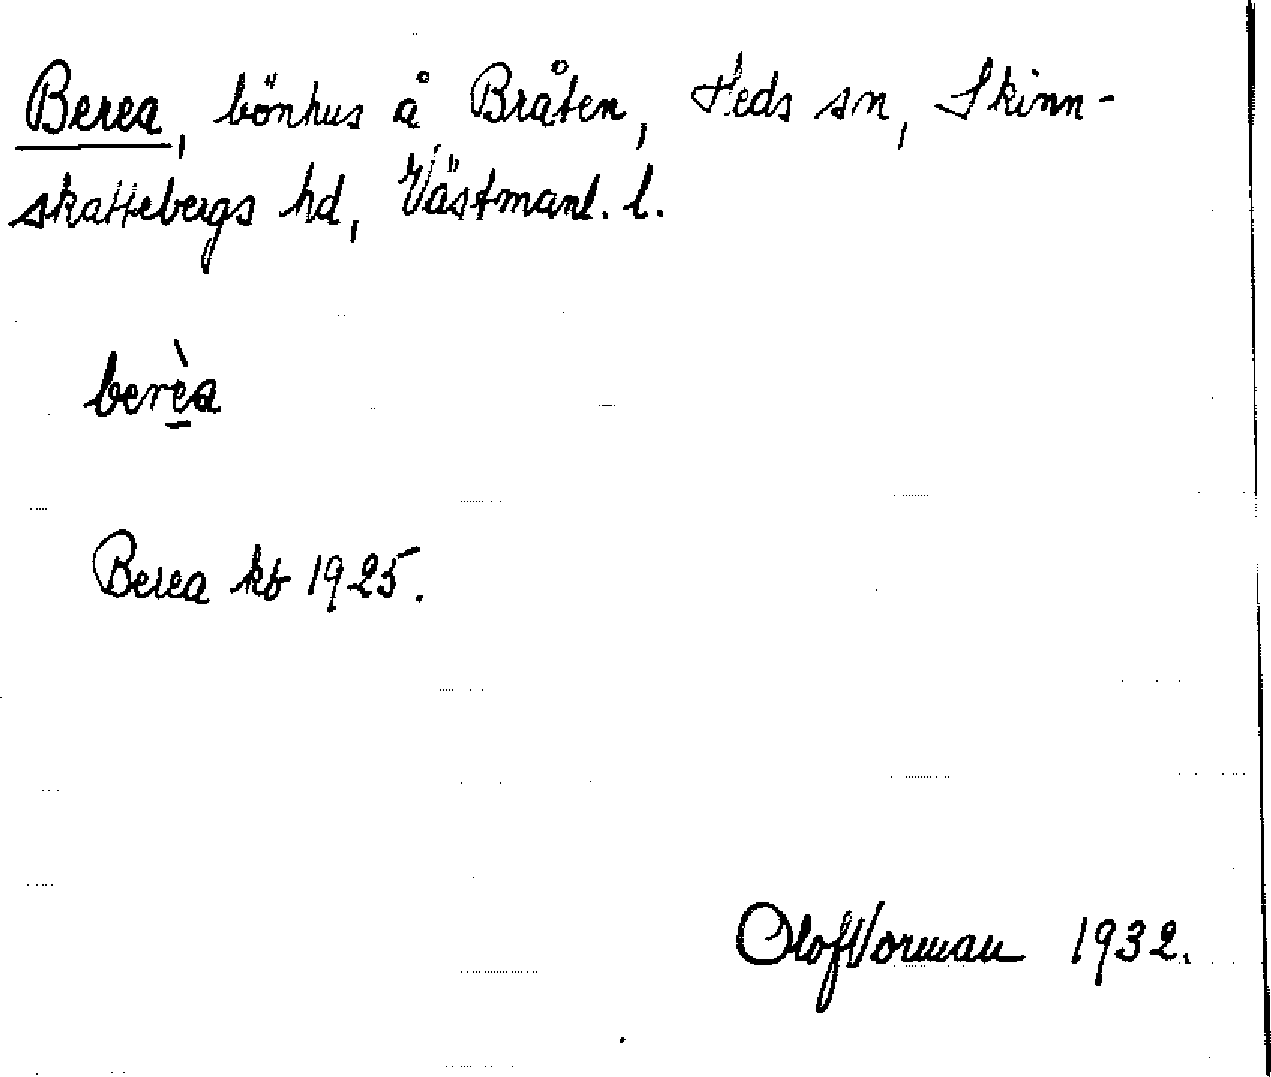 Berea, bönhus å Bråten, Heds sn, Skinn-
skattebergs hd, Västmanl. l.
berèa
Berea kb 1925.
Olof Vorman 1932.